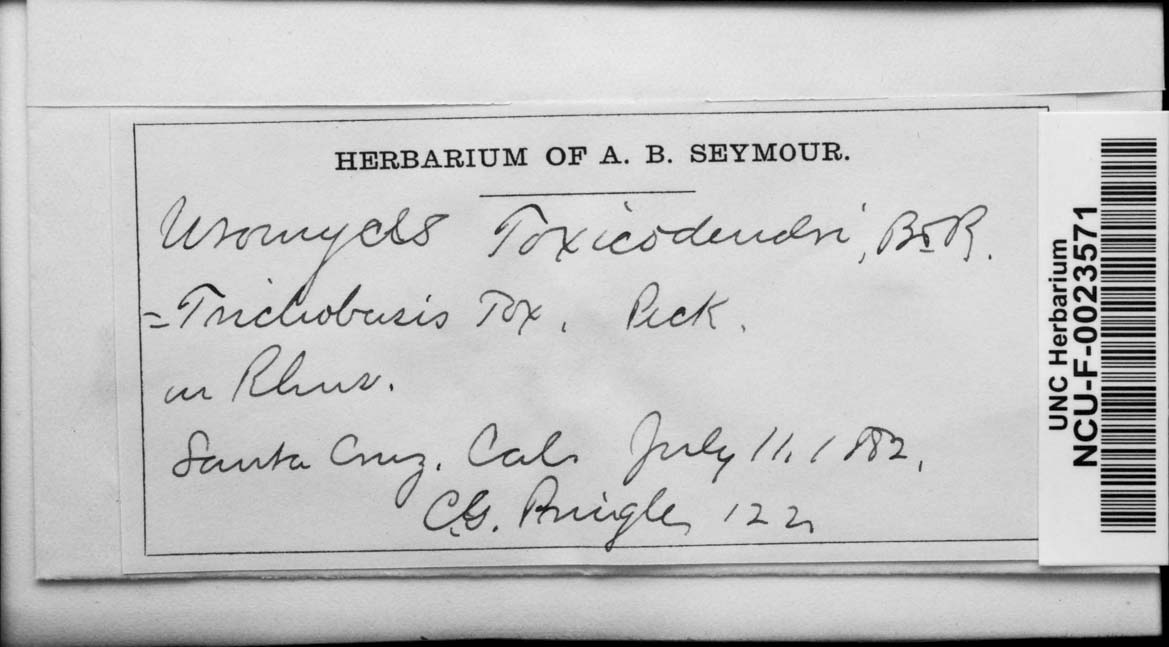 HERBARIUM OF A. B. SEYMOUR.
Uromyces Toxicodendri, B & R.
= Trichobasis Tox. Peck.
on Rhus.
Santa Cruz. Cal. July 11. 1882.
C.G. Pringle, 122
UNC Herbarium
NCU-F-0023571